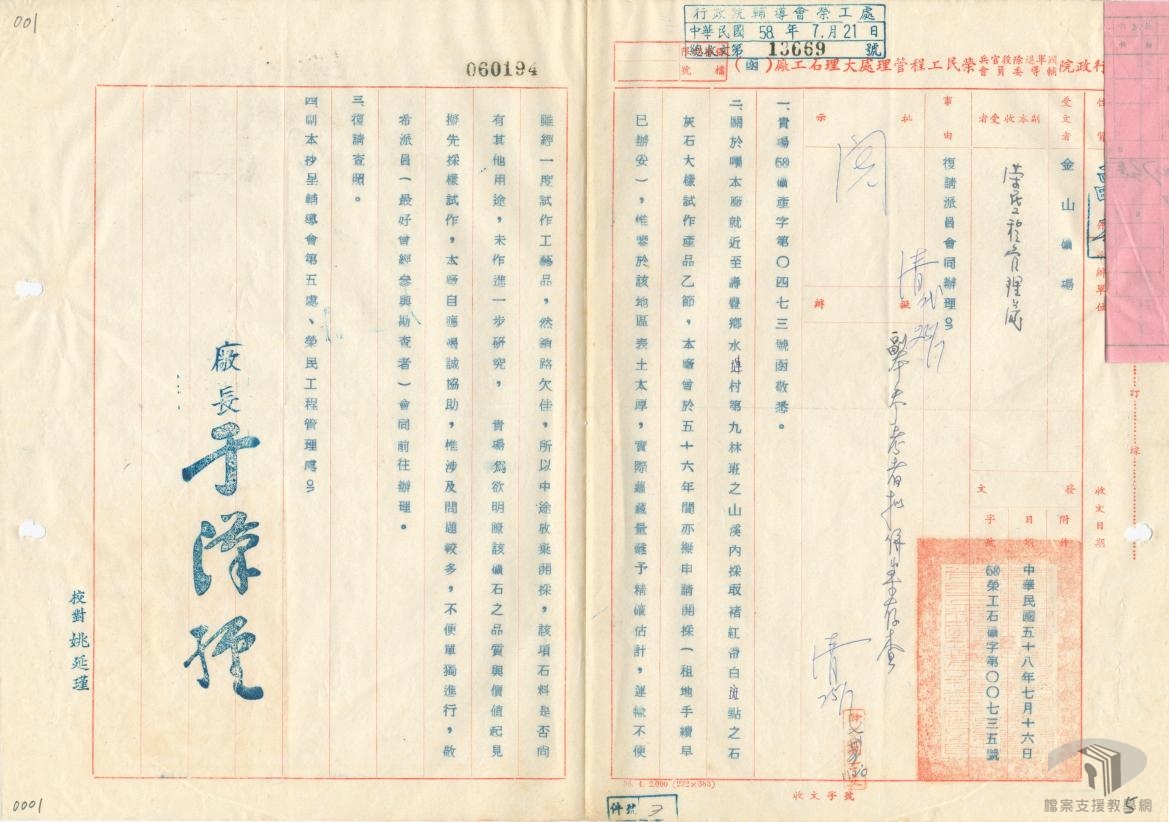 001
060194
行政院輔導會榮工處
中華民國 58 年 7 月 21 日
總收文第 13669 號
行政院國軍退除役官兵輔導委員會榮民工程管理處大理石工廠(函)
檔號
受文者
金山礦場
副本收受者
榮民工程管理處
事由
復請派員會同辦理。
批示
閱
擬辦
副本未考者抄保呈存查
發文
附件
日期
中華民國五十八年七月十六日
字號
58榮工石礦字第〇〇七三五號
收文日期
訂
線
一、貴場58礦產字第〇四七三號函敬悉。
二、關於囑本廠就近至壽豐鄉水璉村第九林班之山溪內採取褚紅帶白斑點之石
灰石大樣試作產品乙節,本廠曾於五十六年間亦擬申請開採(租地手續早
已辦妥),惟鑒於該地區表土太厚,實際蘊藏量難予精確估計,運輸不便
雖經一度試作工藝品,然銷路欠佳,所以中途放棄開採,該項石料是否尚
有其他用途,未作進一步研究,貴場為欲明瞭該礦石之品質與價值起見
擬先採樣試作,本廠自應竭誠協助,惟涉及問題較多,不便單獨進行,敬
希派員(最好曾經參與勘查者)會同前往辦理。
三、復請查照。
四、副本抄呈輔導會第五處、榮民工程管理處。
廠長
校對 姚延瑾
56. 4. 2,000 (272×385)
收文字號
件號 3
0001
5
檔案支援教學網